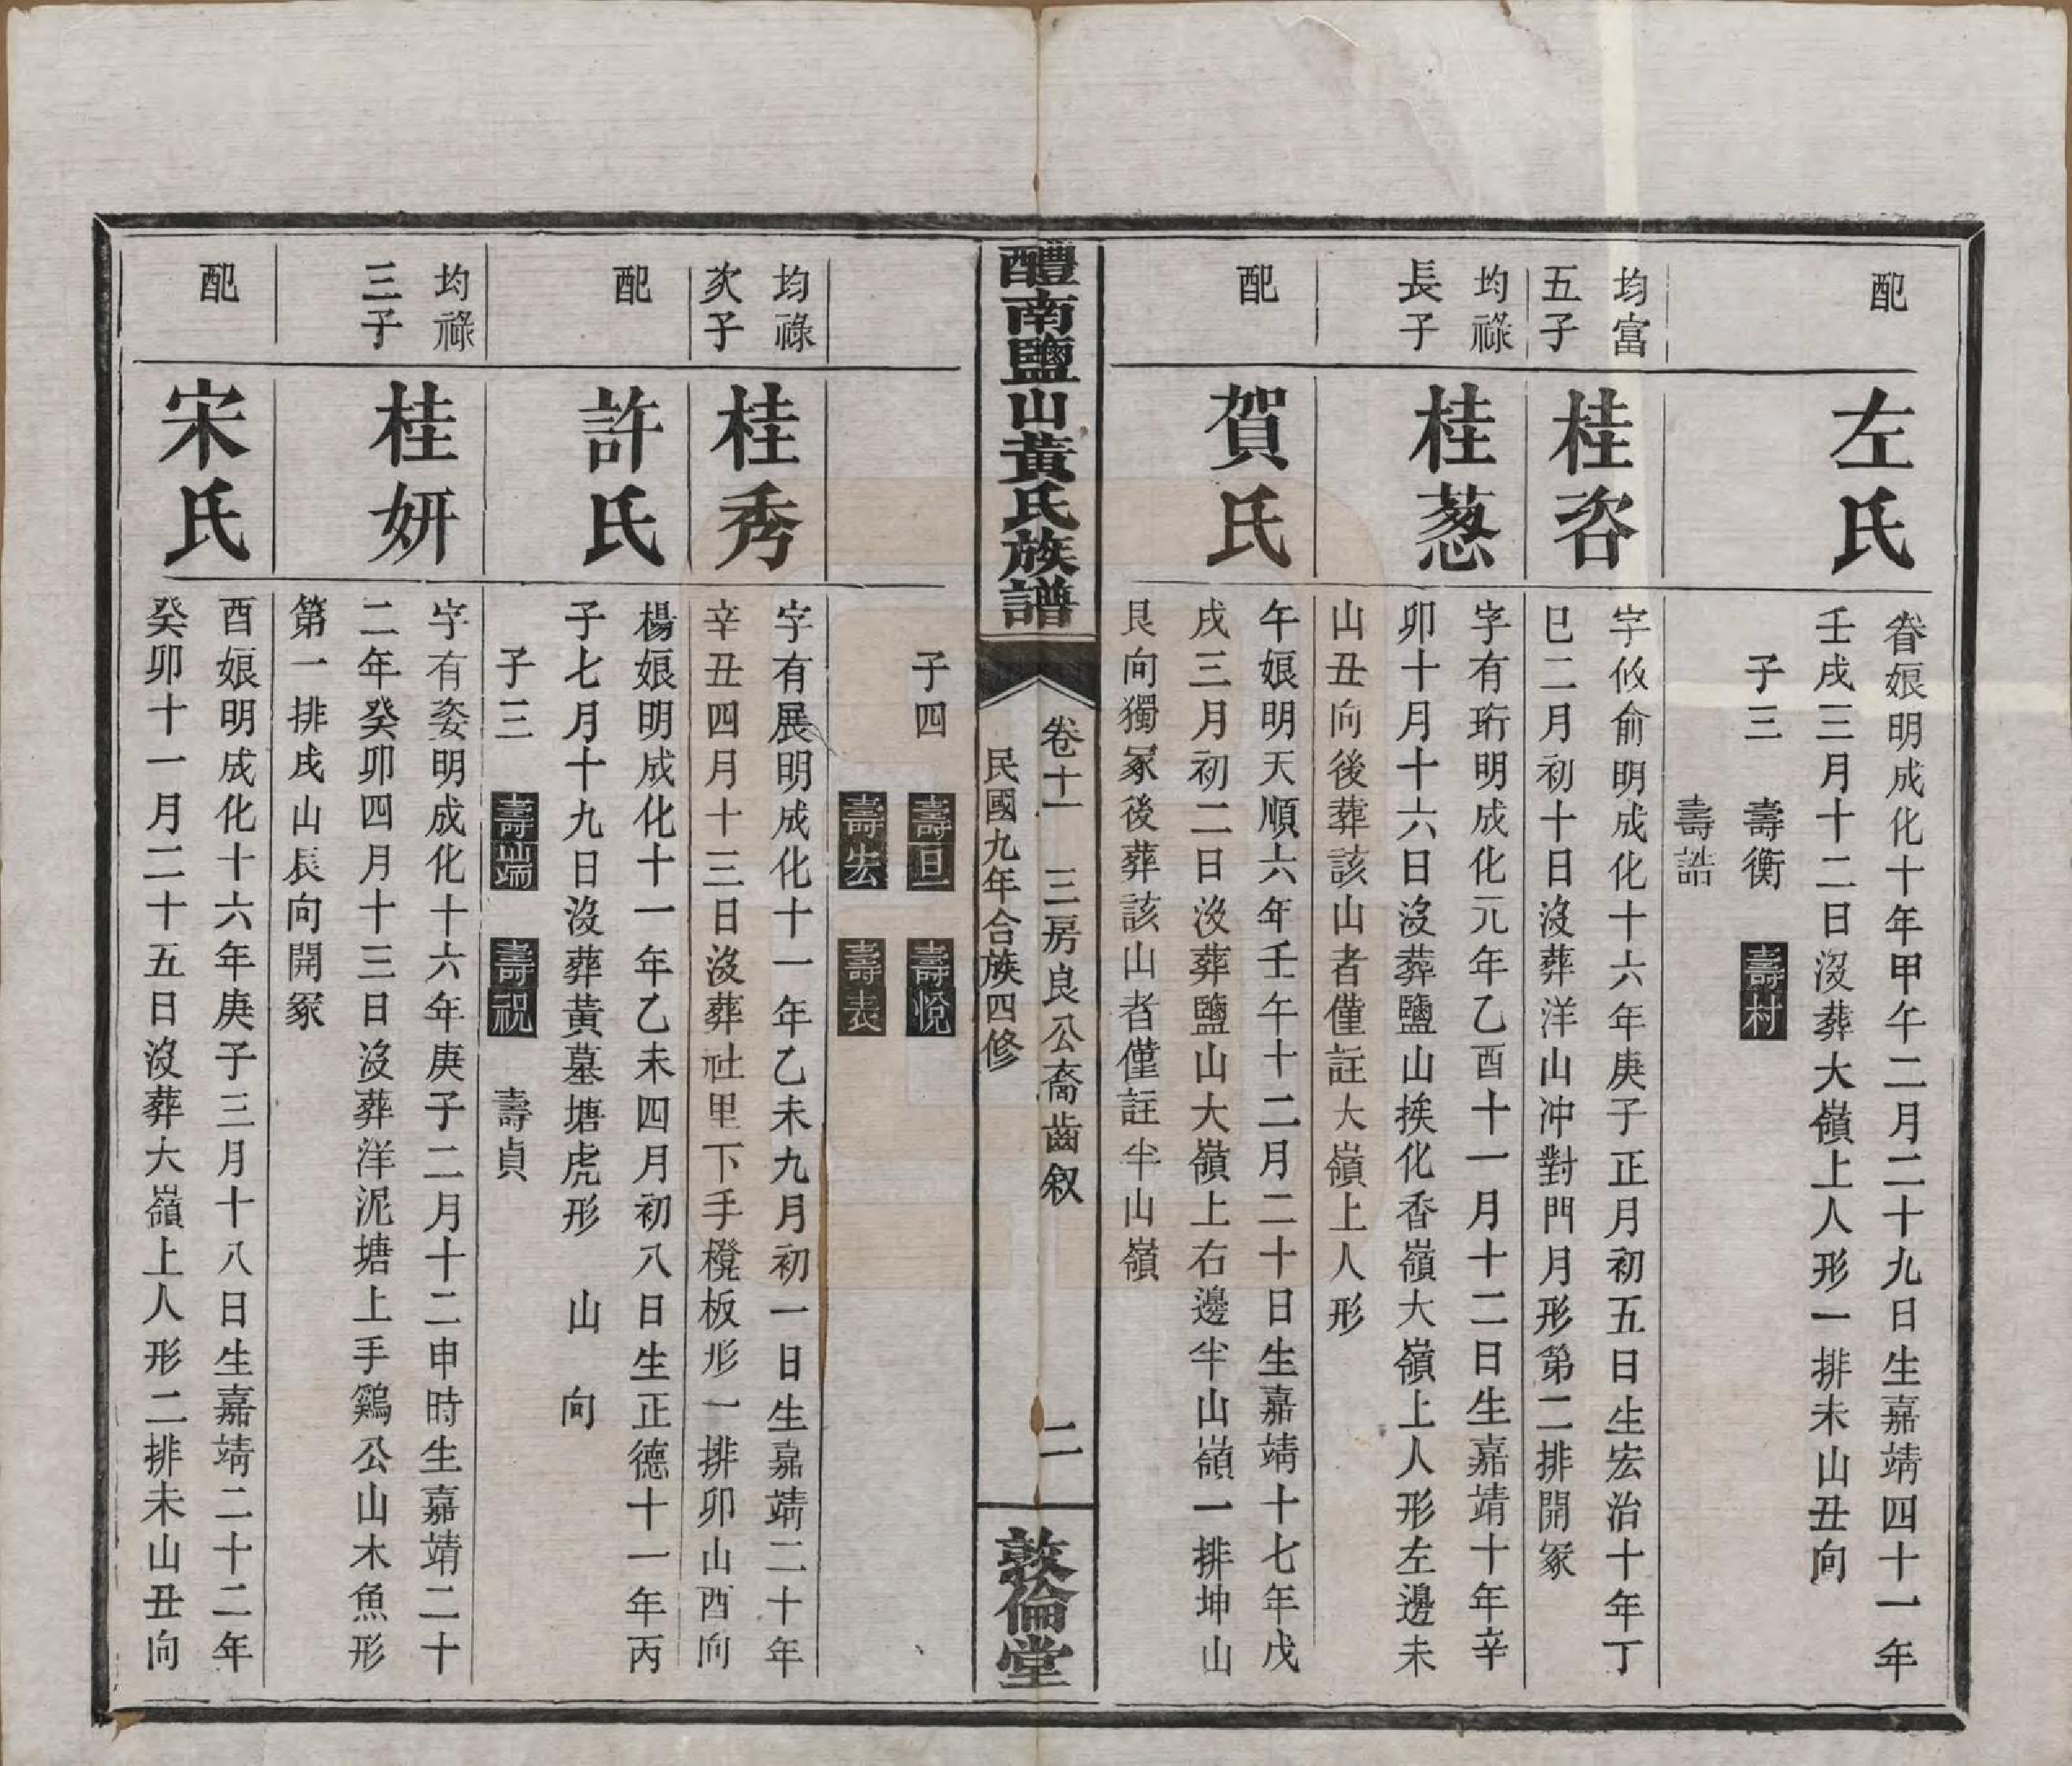 配
左氏
眘娘明成化十年甲午二月二十九日生嘉靖四十一年
壬戌三月十二日沒葬大嶺上人形一排未山丑向
子三 壽衡 壽村
壽誥
均富
五子
桂咨
字攸俞明成化十六年庚子正月初五日生宏治十年丁
巳二月初十日沒葬洋山冲對門月形第二排開冢
均祿
長子
桂蔥
字有珩明成化元年乙酉十一月十二日生嘉靖十年辛
卯十月十六日沒葬鹽山挨化香嶺大嶺上人形左邊未
山丑向後葬該山者僅註大嶺上人形
配
賀氏
午娘明天順六年壬午十二月二十日生嘉靖十七年戊
戌三月初二日沒葬鹽山大嶺上右邊半山嶺一排坤山
艮向獨冢後葬該山者僅註半山嶺
醴南鹽山黃氏族譜
卷十一 三房良公裔齒叙 二
民國九年合族四修
敦倫堂
子四 壽旦 壽悅
壽宏 壽表
均祿
次子
桂秀
字有展明成化十一年乙未九月初一日生嘉靖二十年
辛丑四月十三日沒葬社里下手櫈板形一排卯山酉向
配
許氏
楊娘明成化十一年乙未四月初八日生正德十一年丙
子七月十九日沒葬黃墓塘虎形 山 向
子三 壽耑 壽祝 壽貞
均祿
三子
桂妍
字有姿明成化十六年庚子二月十二申時生嘉靖二十
二年癸卯四月十三日沒葬洋泥塘上手鷄公山木魚形
第一排戌山辰向開冢
配
宋氏
酉娘明成化十六年庚子三月十八日生嘉靖二十二年
癸卯十一月二十五日沒葬大嶺上人形二排未山丑向